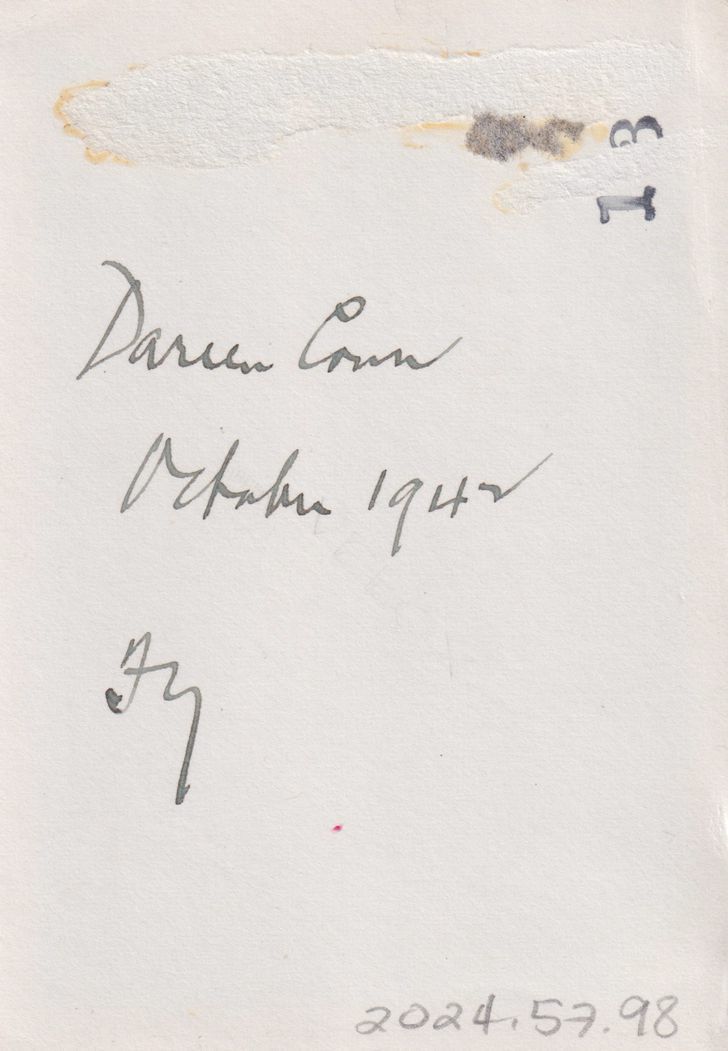 13
Darien Conn
October 1942
Fy
2024.57.98